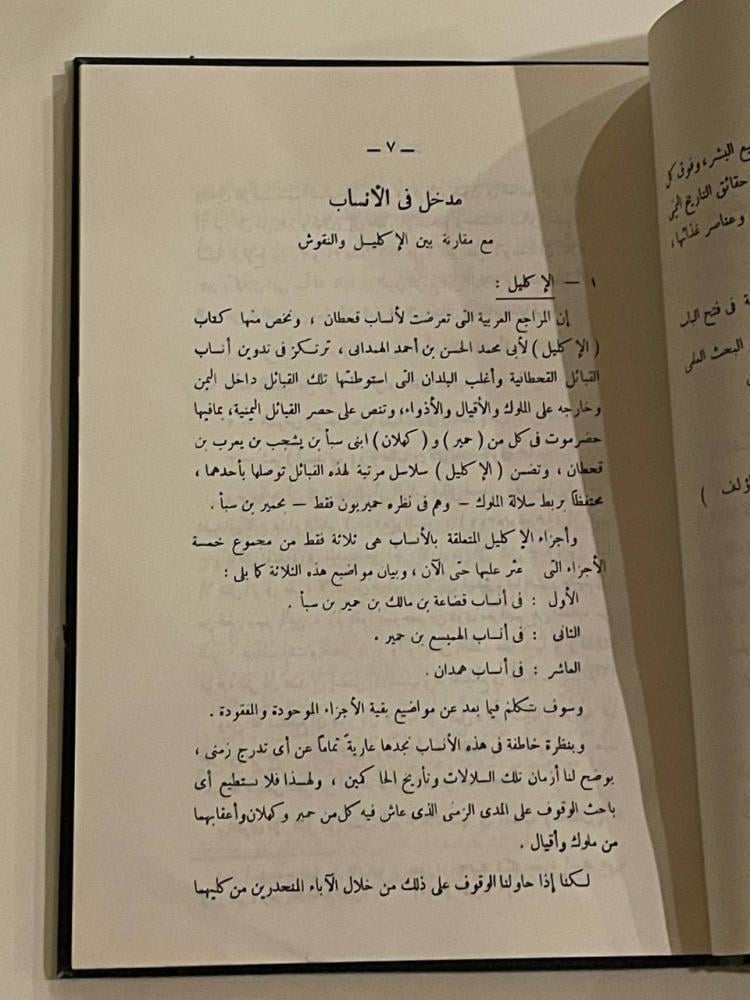 — ٧ —
مدخل فى الأنساب
مع مقارنة بين الإكليل والنقوش
١ — الإكليل :
إن المراجع العربية التى تعرضت لأنساب قحطان ، ونخص منها كتاب
( الإكليل ) لأبى محمد الحسن بن أحمد الهمدانى ، ترتكز فى تدوين أنساب
القبائل القحطانية وأغلب البلدان التى استوطنتها تلك القبائل داخل اليمن
وخارجه على الملوك والأقيال والأذواء، وتنص على حصر القبائل اليمنية، بمافيها
حضرموت فى كل من ( حمير ) و ( كهلان ) ابنى سبأ بن يشجب بن يعرب بن
قحطان ، وتضمن ( الإكليل ) سلاسل مرتبة لهذه القبائل توصلها بأحدهما ،
محتفظاً بربط سلالة الملوك – وهم فى نظره حميريون فقط – بحمير بن سبأ .
وأجزاء الإكليل المتعلقة بالأنساب هى ثلاثة فقط من مجموع خمسة
الأجزاء التى عثر عليها حتى الآن ، وبيان مواضيع هذه الثلاثة كما يلى :
الأول : فى أنساب قضاعة بن مالك بن حمير بن سبأ .
الثانى : فى أنساب الهميسع بن حمير .
العاشر : فى أنساب همدان .
وسوف نتكلم فيما بعد عن مواضيع بقية الأجزاء الموجودة والمفقودة .
وبنظرة خاطفة فى هذه الأنساب نجدها عاريةً تماماً عن أى تدرج زمنى ،
يوضح لنا أزمان تلك السلالات وتأريخ الحاكمين ، ولهذا فلا يستطيع أى
باحث الوقوف على المدى الزمنى الذى عاش فيه كل من حمير وكهلان وأعقابهما
من ملوك وأقيال .
لكنا إذا حاولنا الوقوف على ذلك من خلال الآباء المنحدرين من كليهما
البشر ، وفوق كل
حقائق التاريخ
وعناصر غذائها ،
فى فتح
البحث العلمى